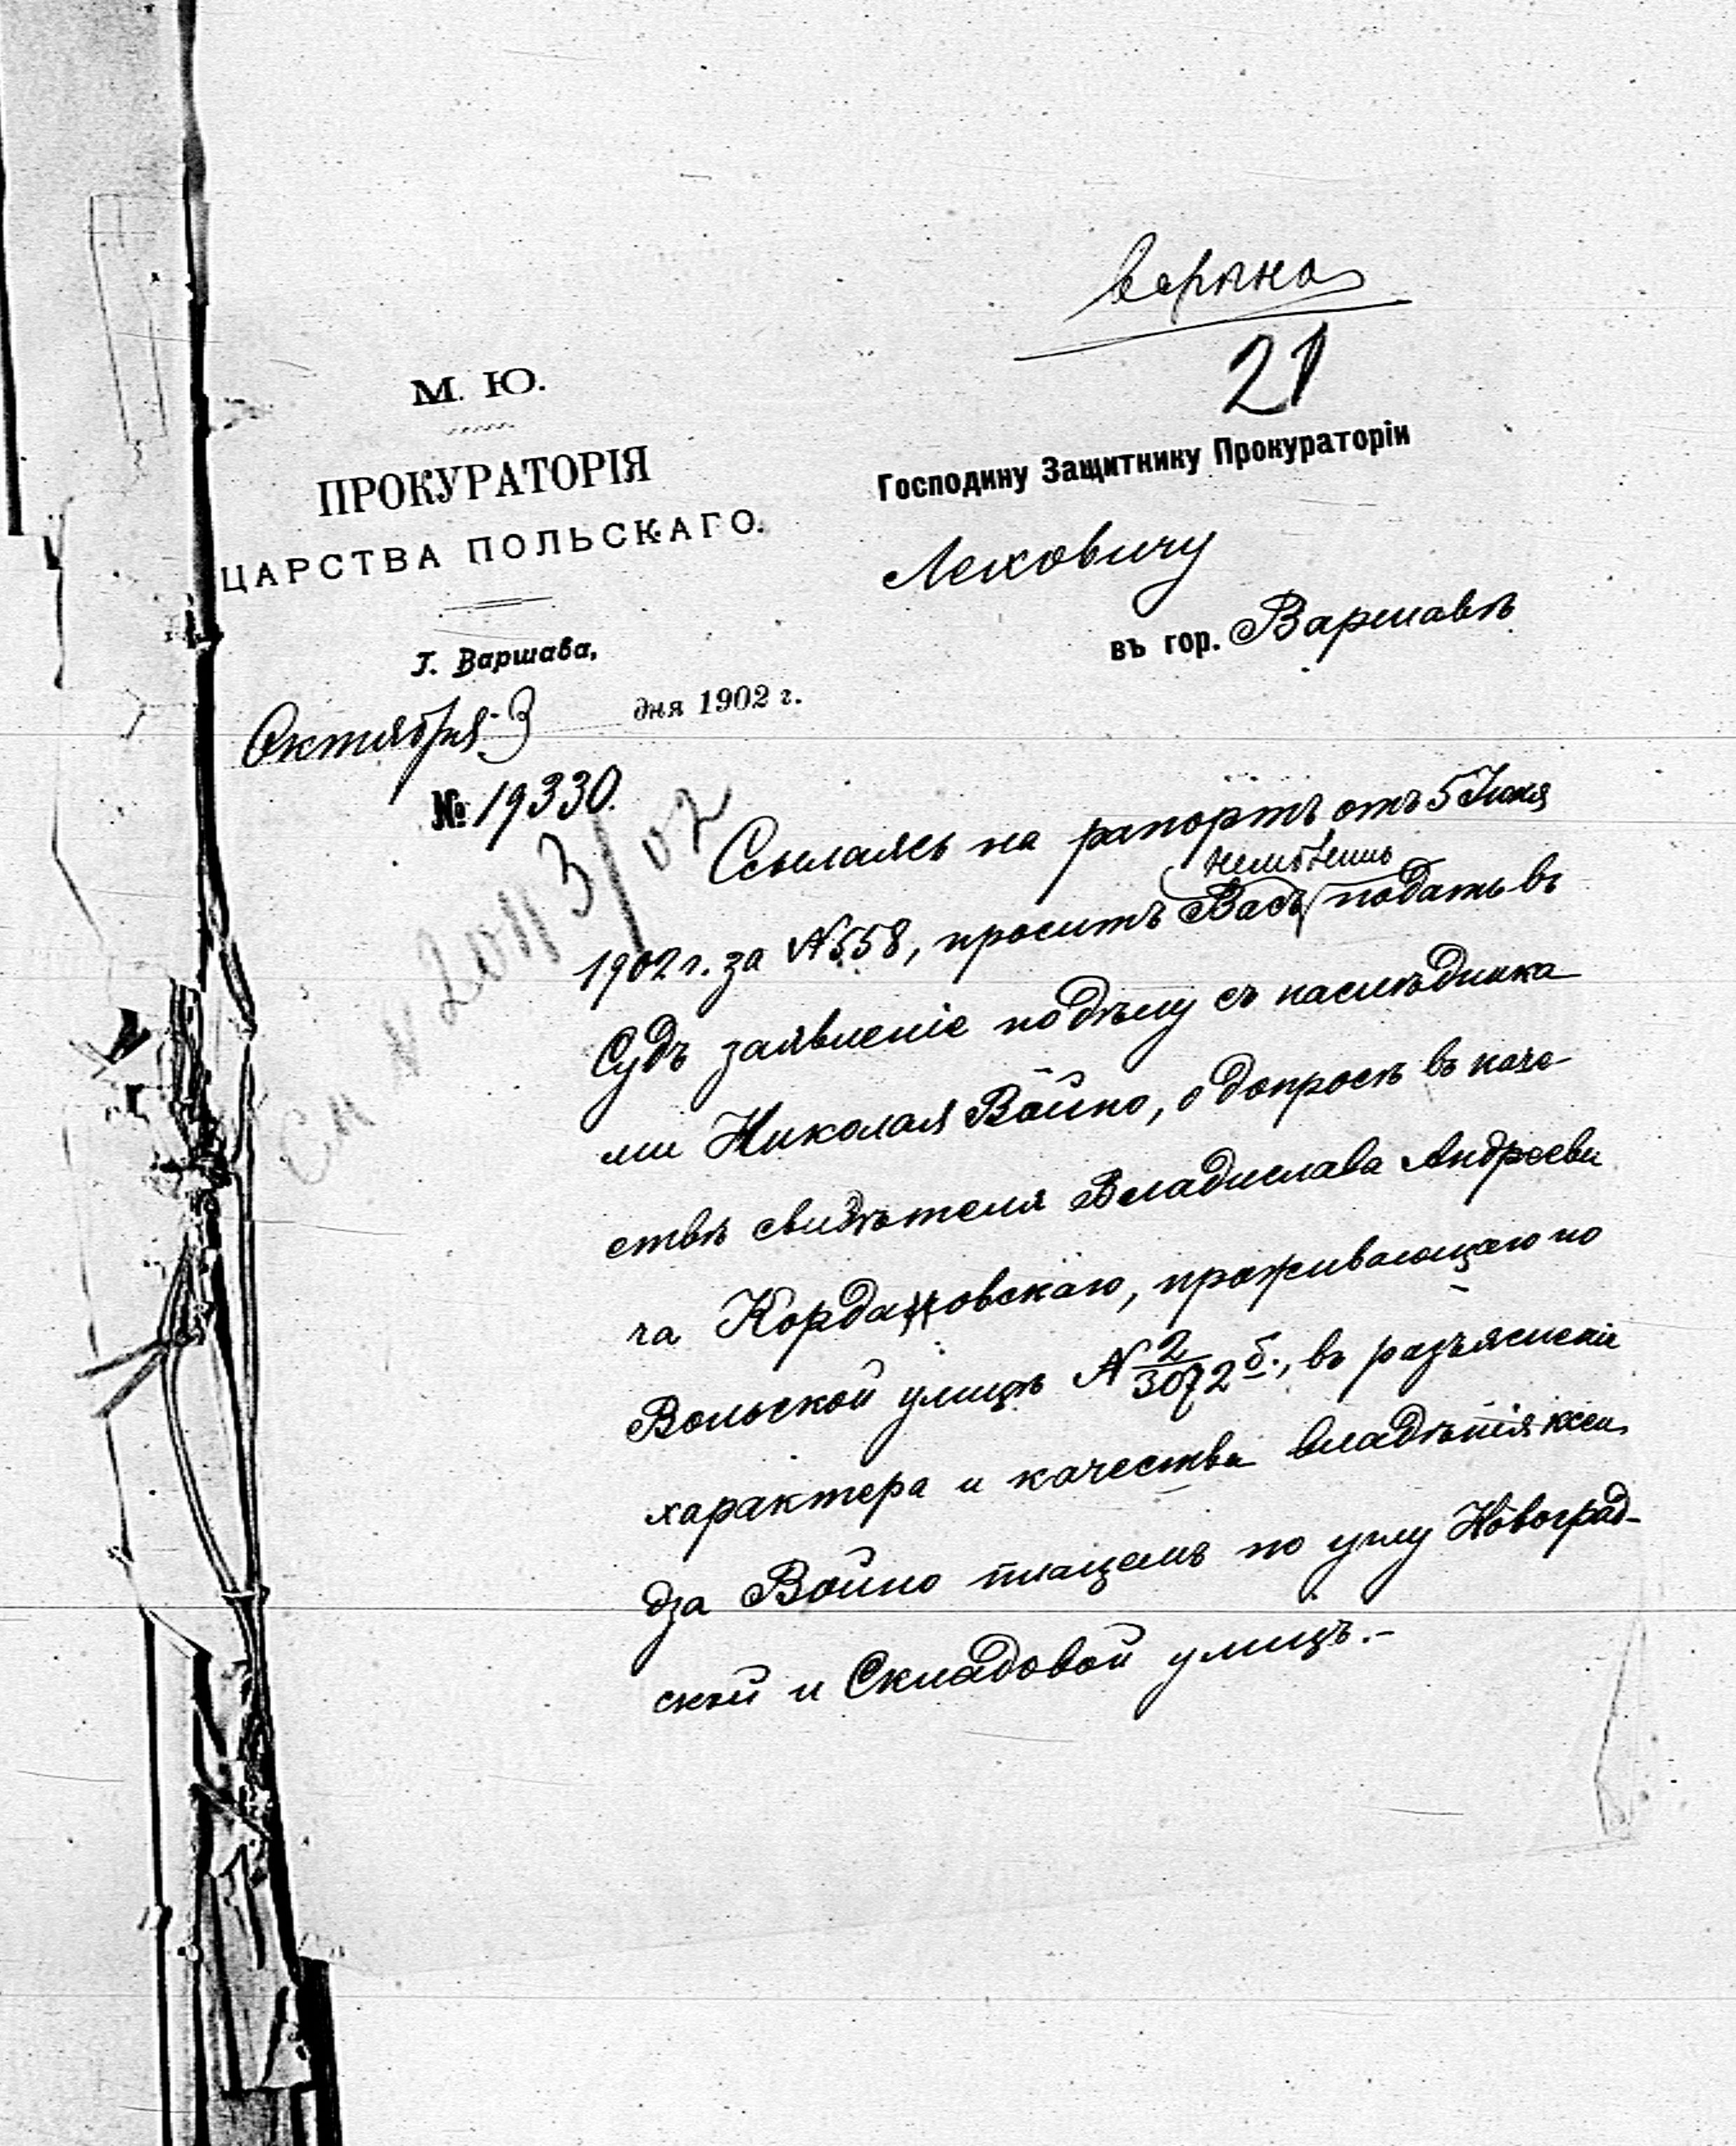 вѣрно
21
М. Ю.
ПРОКУРАТОРІЯ
ЦАРСТВА ПОЛЬСКАГО.
Г. Варшава,
Октября 3 дня 1902 г.
№ 19330.
См № 20113/02
Господину Защитнику Прокураторіи
Леховичу
въ гор. Варшавѣ
Ссылаясь на рапортъ отъ 5 Іюня
1902 г. за № 558, проситъ Васъ подать въ
Судъ заявленіе по дѣлу съ наслѣдника
ми Николая Войно, о допросѣ въ каче-
ствѣ свидѣтеля Владислава Андрееви
ча Кордановскаго, проживающаго по
Вольской улицѣ № 2/3072 б., въ разъясненіе
характера и качества владѣнія ксен
дза Войно плацемъ по углу Новоград-
ской и Складовой улицъ.-